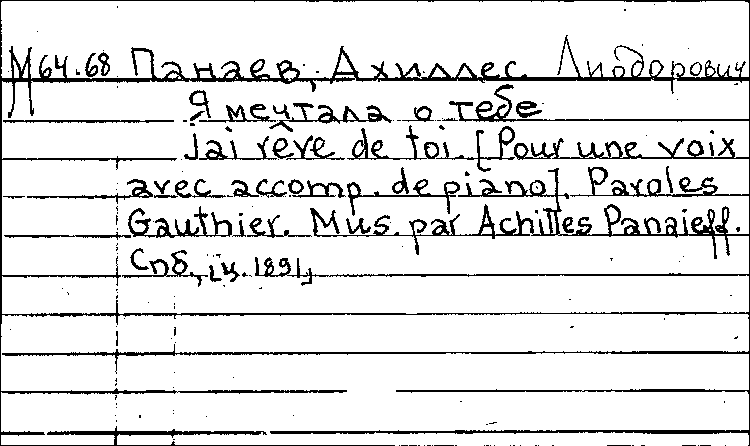 М64.68 Панаев, Ахиллес Лиодорович
Я мечтала о тебе
Jai rêve de toi. [Pour une voix
avec accomp. de piano]. Paroles
Gauthier. Mus. par Achilles Panaieff.
Спб., [ц. 1891]